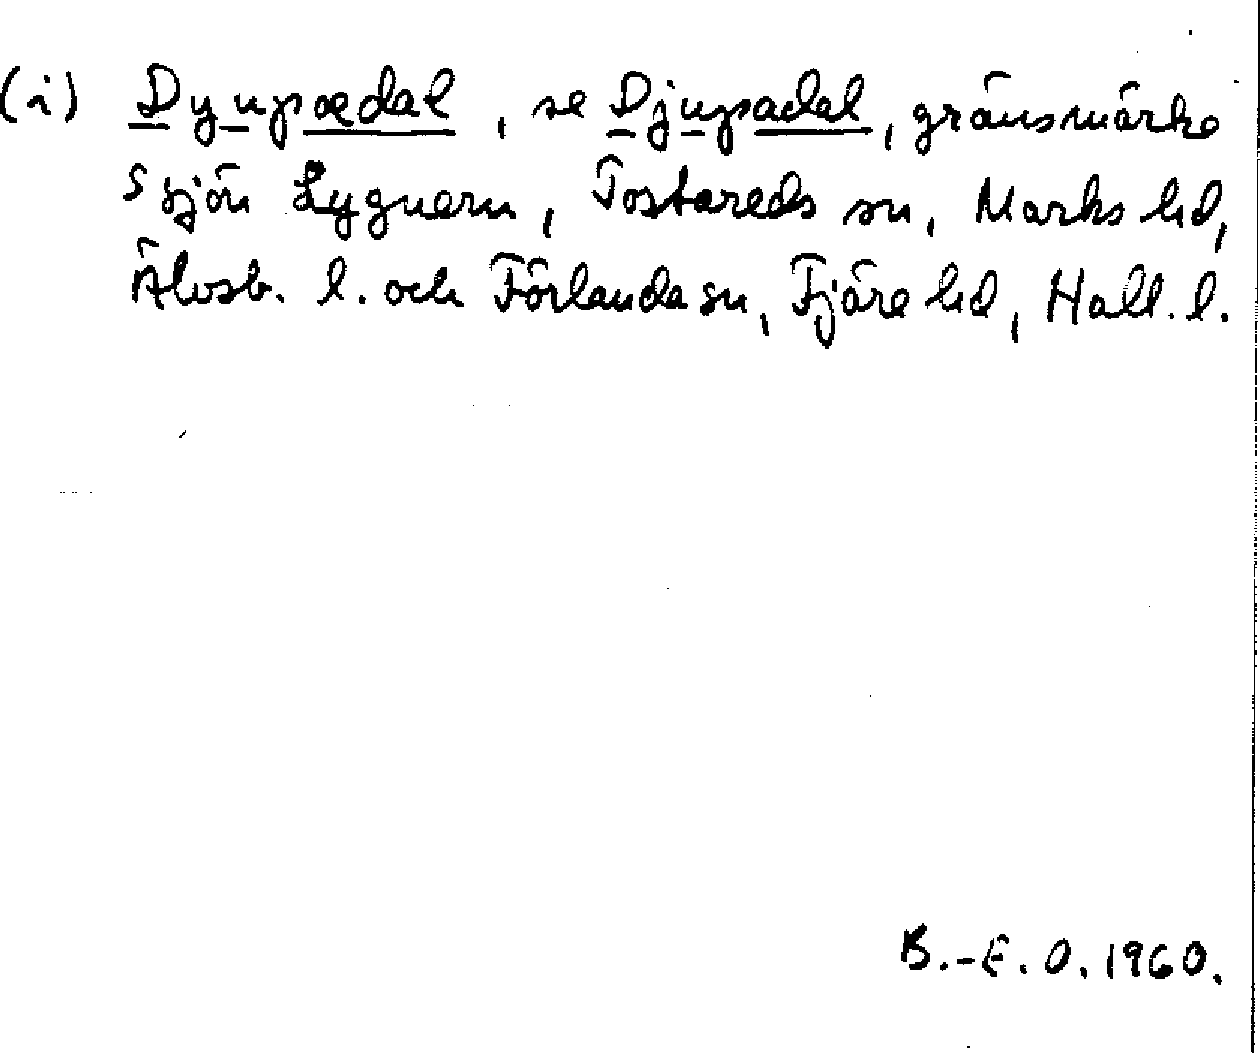 (i) Dyupædal, se Djupadal, gränsmärke
S sjön Lygnern, Tostareds sn, Marks hd,
Älvsb. l. och Förlanda sn, Fjäre hd, Hall. l.
B.-E. O. 1960.